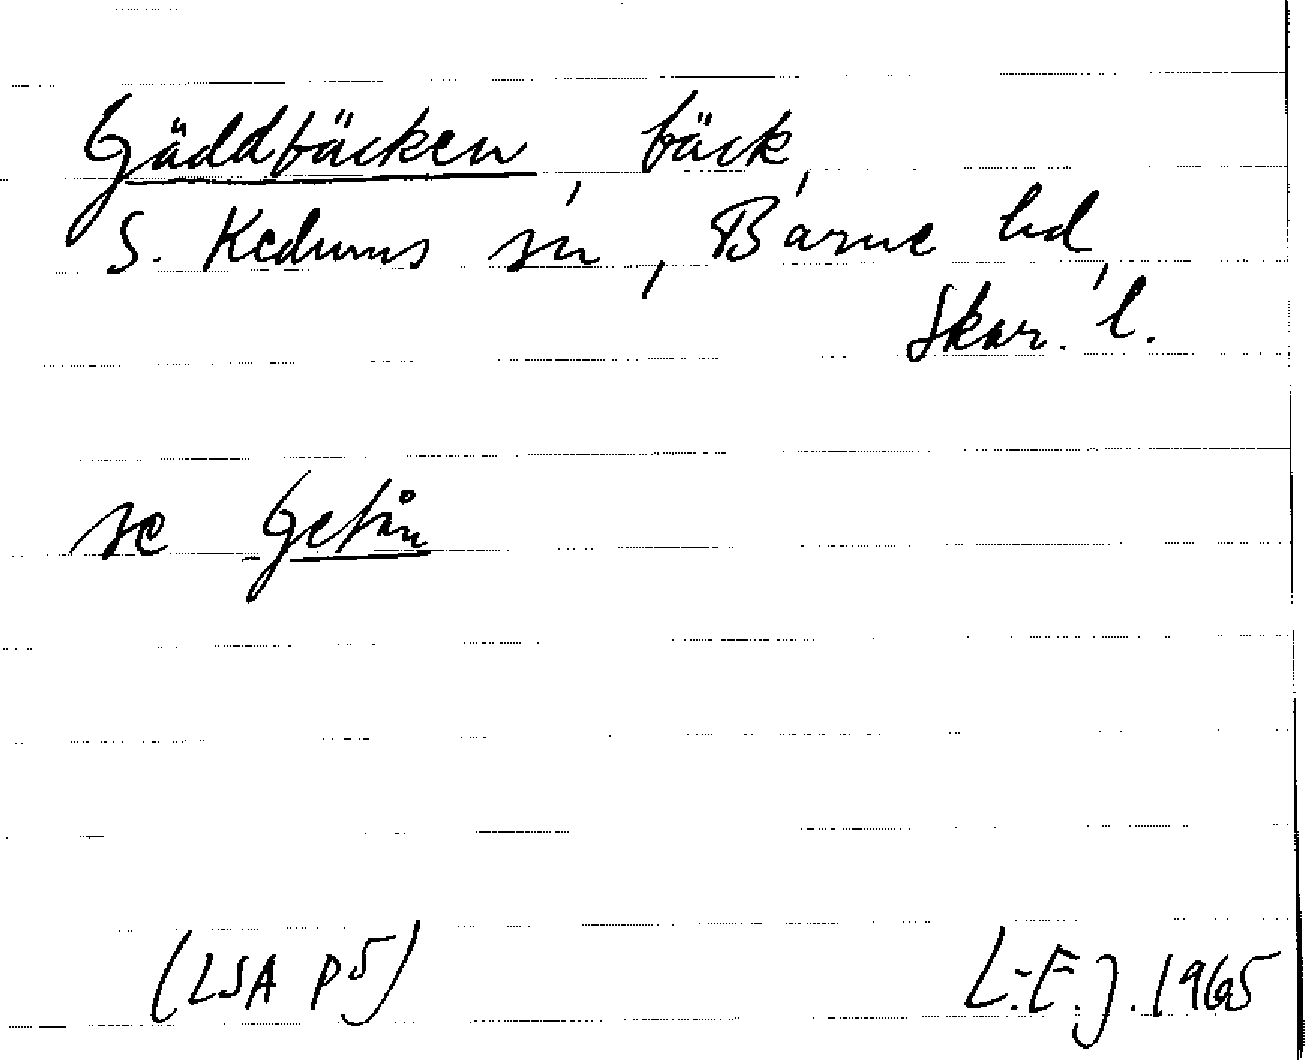 Gäddbäcken, bäck,
S. Kedums sn, Barne hd,
Skar. l.
se Getån
(LSA P5)
L.-E. J. 1965